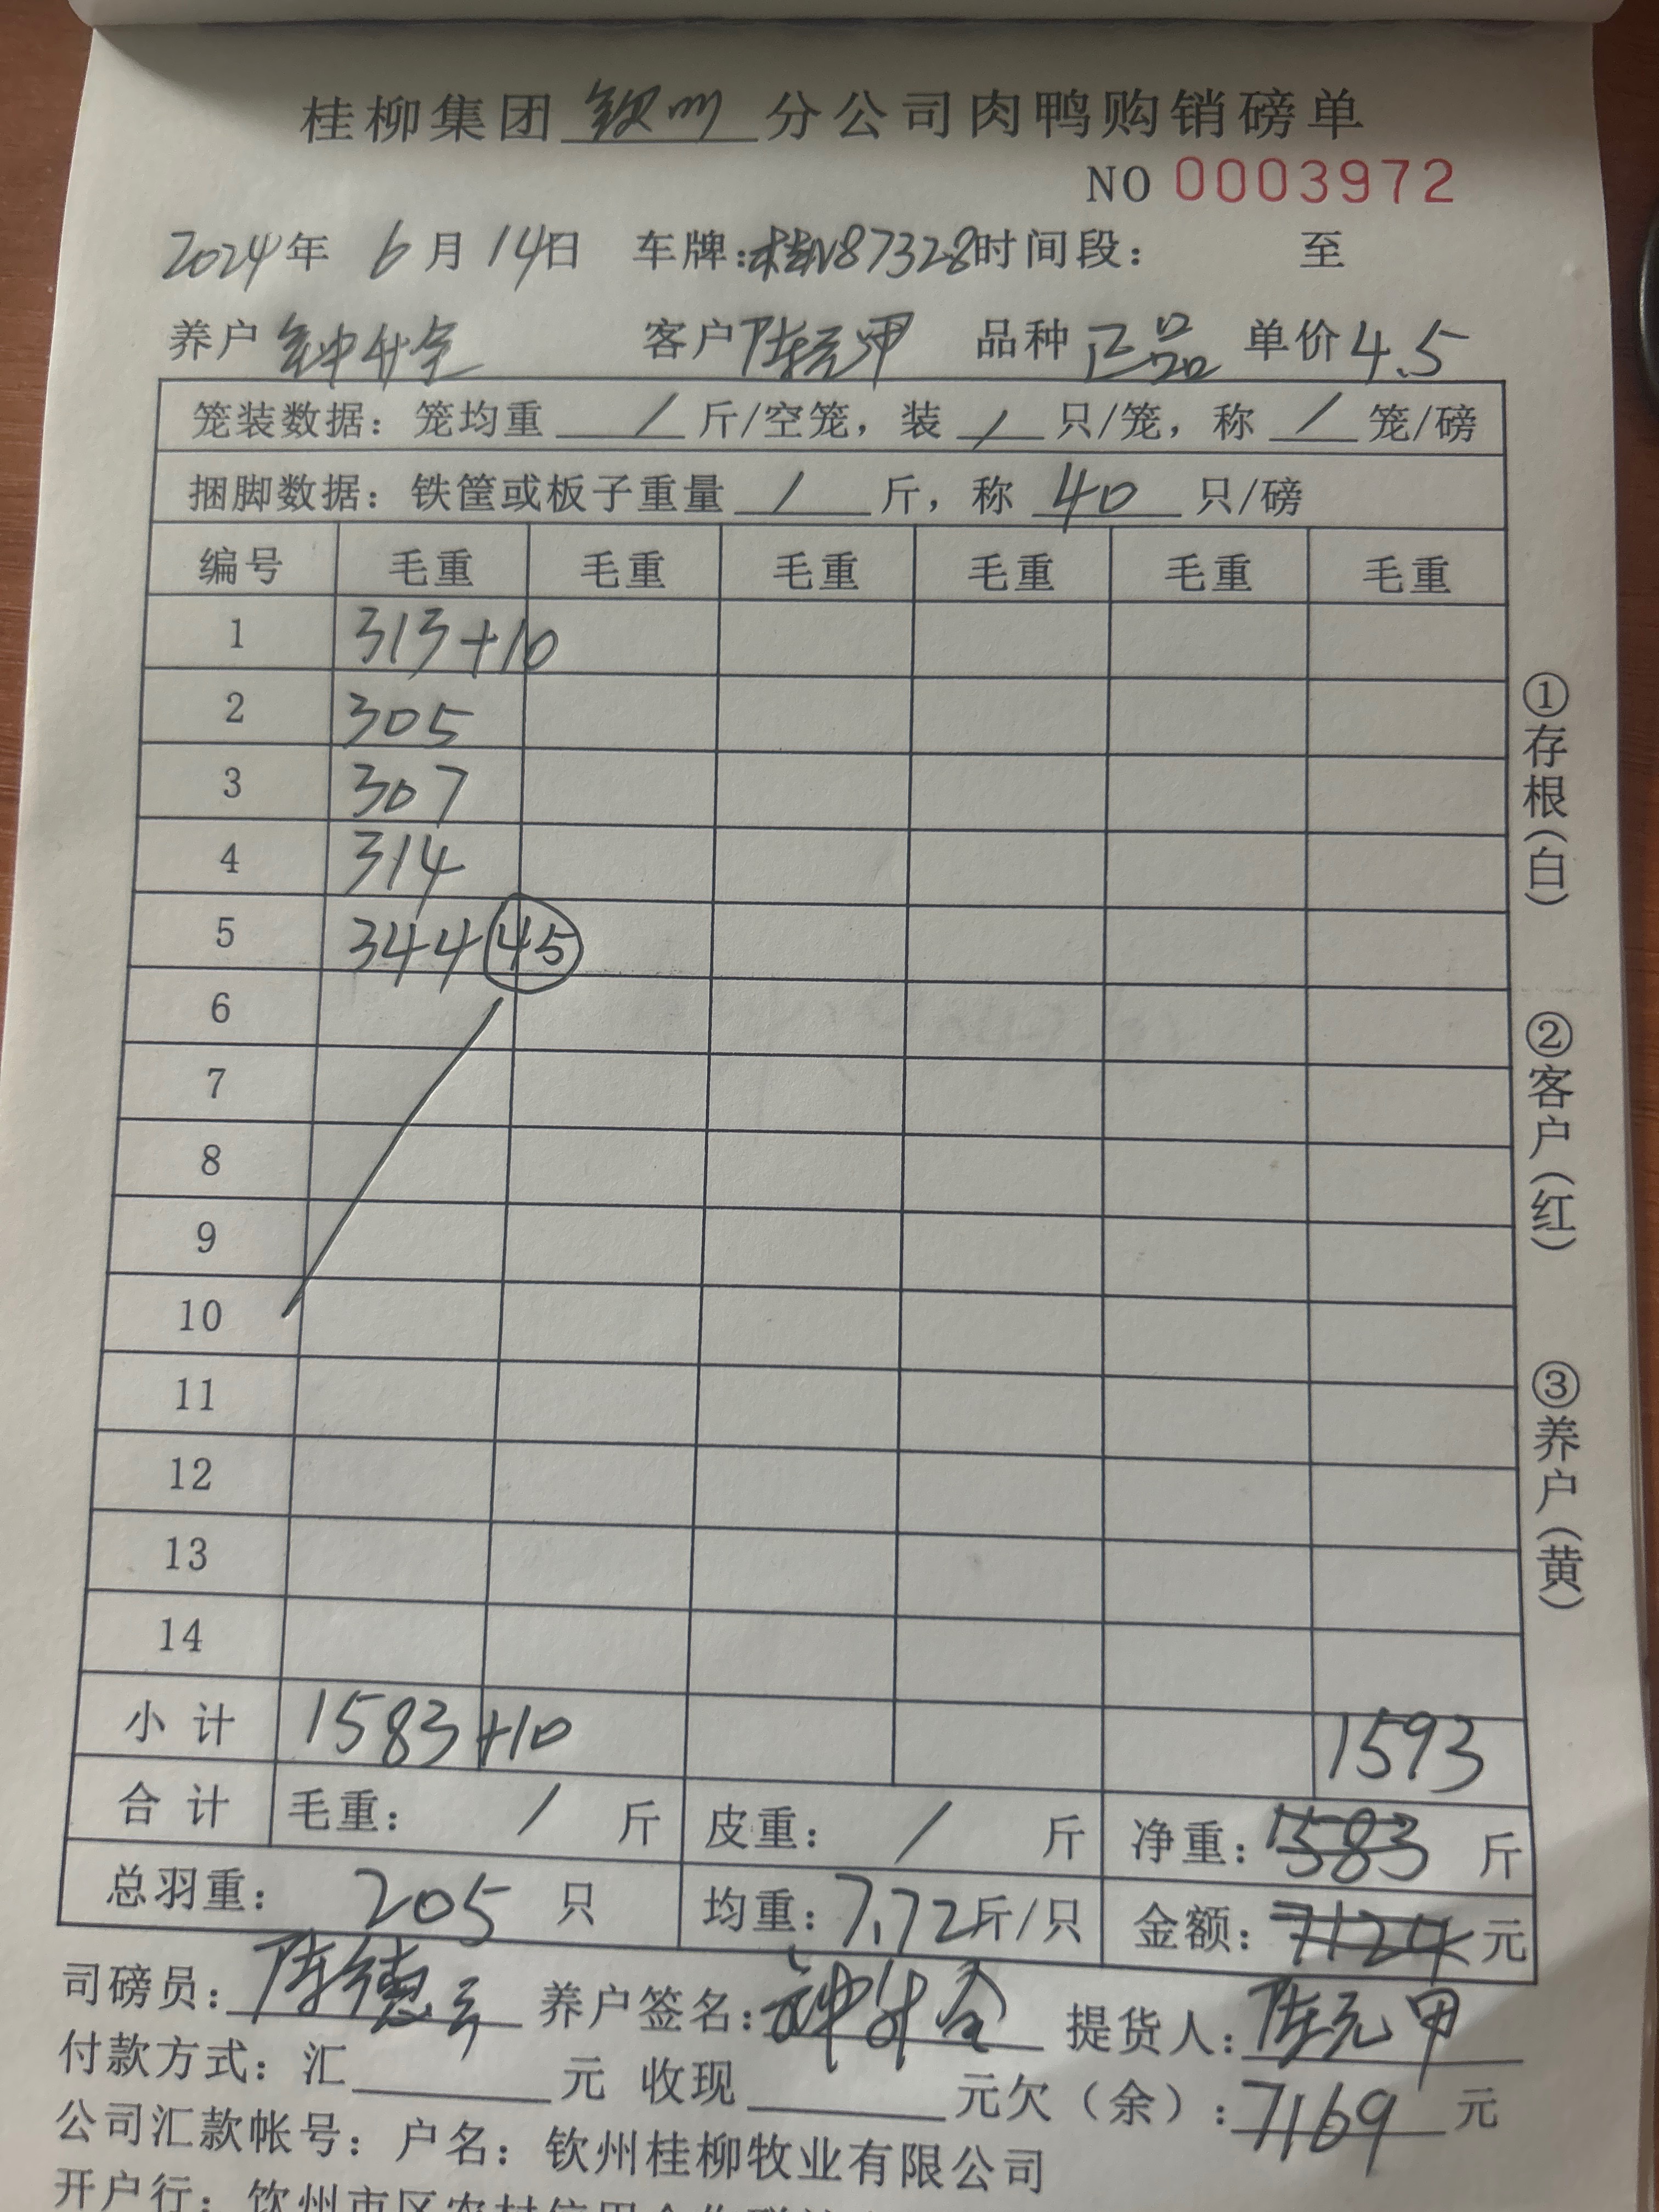 桂柳集团 钦州 分公司肉鸭购销磅单
NO 0003972
2024年 6月14日 车牌:桂N87328时间段: 至
养户 钟什全 客户 陈元甲 品种 正品 单价 4.5
笼装数据: 笼均重 / 斤/空笼, 装 / 只/笼, 称 / 笼/磅
捆脚数据: 铁筐或板子重量 / 斤, 称 40 只/磅
编号 毛重 毛重 毛重 毛重 毛重 毛重
1 313+10
2 305
3 307
4 314
5 344 45
6
7
8
9
10
11
12
13
14
小计 1583+10 1593
合计 毛重: / 斤 皮重: / 斤 净重: 1583 斤
总羽重: 205 只 均重: 7.72斤/只 金额: 7124 元
司磅员: 陈德云 养户签名: 钟什全 提货人: 陈元甲
付款方式: 汇 元 收现 元欠(余): 7169 元
公司汇款帐号: 户名: 钦州桂柳牧业有限公司
开户行: 钦州市区农村信用合作联社
①存根(白)
②客户(红)
③养户(黄)